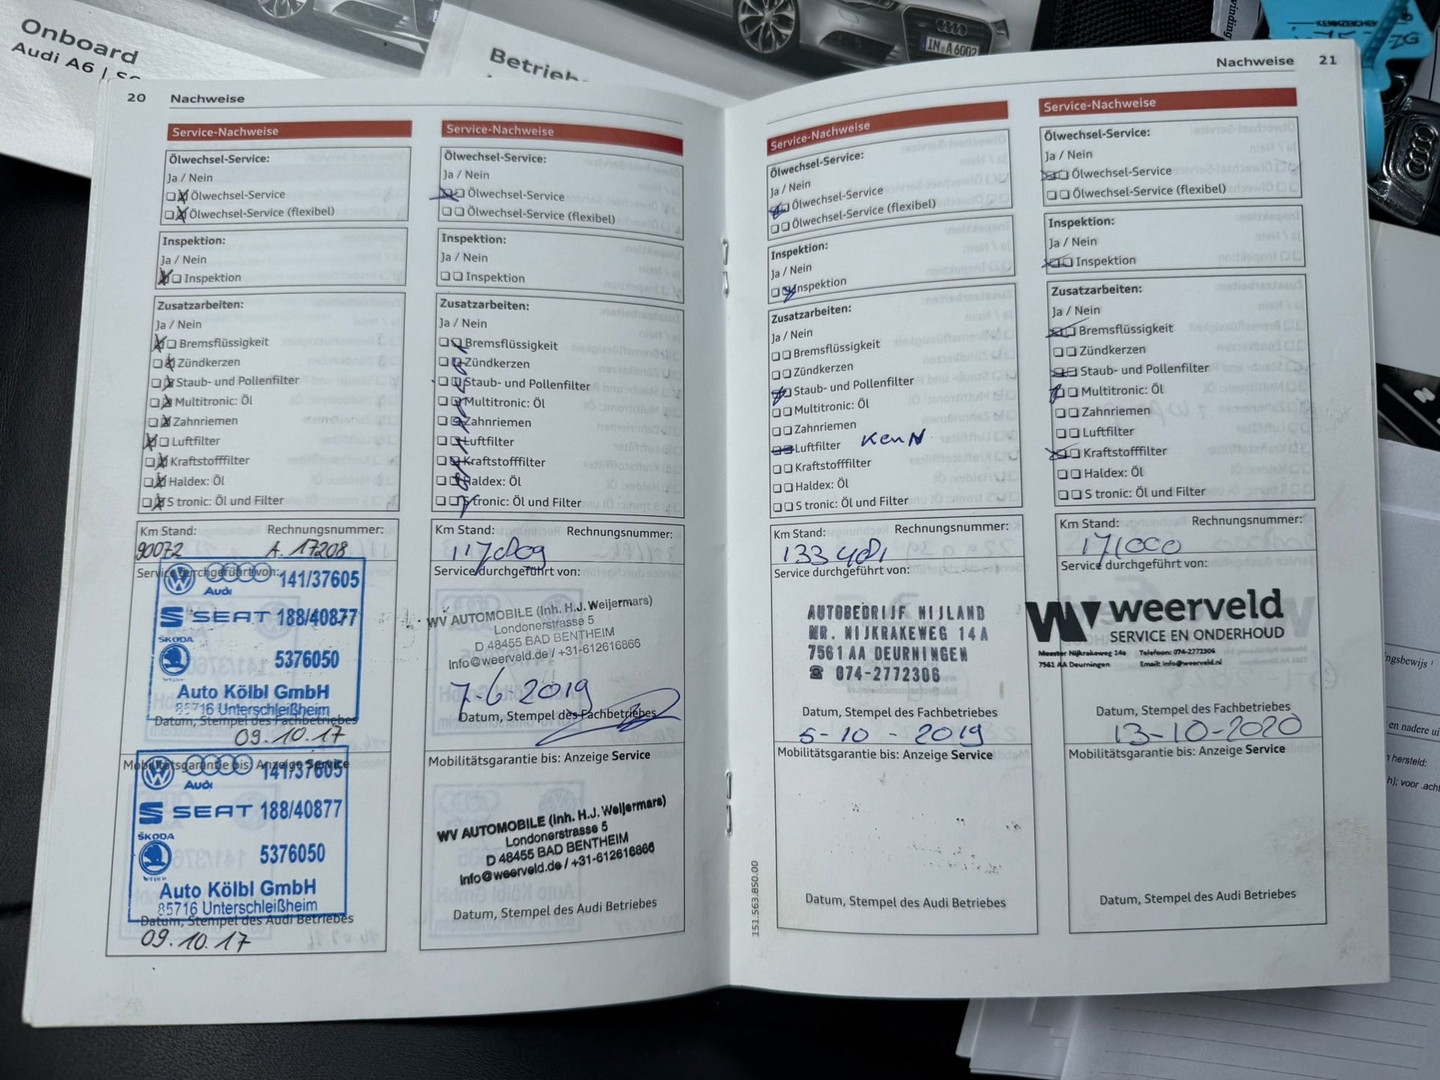 Onboard
Audi A6 | S6
Betrieb
IN·A 6002
20 Nachweise
Service-Nachweise
Ölwechsel-Service:
Ja / Nein
Ölwechsel-Service
Ölwechsel-Service (flexibel)
Inspektion:
Ja / Nein
Inspektion
Zusatzarbeiten:
Ja / Nein
Bremsflüssigkeit
Zündkerzen
Staub- und Pollenfilter
Multitronic: Öl
Zahnriemen
Luftfilter
Kraftstofffilter
Haldex: Öl
S tronic: Öl und Filter
Km Stand: Rechnungsnummer:
90072 A. 17208
Service durchgeführt von:
141/37605
Audi
SEAT 188/40877
ŠKODA
5376050
Auto Kölbl GmbH
85716 Unterschleißheim
Datum, Stempel des Fachbetriebes
09.10.17
Mobilitätsgarantie bis: Anzeige Service
141/37605
Audi
SEAT 188/40877
ŠKODA
5376050
Auto Kölbl GmbH
85716 Unterschleißheim
Datum, Stempel des Audi Betriebes
09.10.17
Service-Nachweise
Ölwechsel-Service:
Ja / Nein
Ölwechsel-Service
Ölwechsel-Service (flexibel)
Inspektion:
Ja / Nein
Inspektion
Zusatzarbeiten:
Ja / Nein
Bremsflüssigkeit
Zündkerzen
Staub- und Pollenfilter
Multitronic: Öl
Zahnriemen
Luftfilter
Kraftstofffilter
Haldex: Öl
S tronic: Öl und Filter
Km Stand: Rechnungsnummer:
Service durchgeführt von:
WV AUTOMOBILE (Inh. H.J. Weijermars)
Londonerstrasse 5
D 48455 BAD BENTHEIM
Info@weerveld.de / +31-612616866
7-6-2019
Datum, Stempel des Fachbetriebes
Mobilitätsgarantie bis: Anzeige Service
WV AUTOMOBILE (Inh. H.J. Weijermars)
Londonerstrasse 5
D 48455 BAD BENTHEIM
Info@weerveld.de / +31-612616866
Datum, Stempel des Audi Betriebes
Nachweise 21
Service-Nachweise
Ölwechsel-Service:
Ja / Nein
Ölwechsel-Service
Ölwechsel-Service (flexibel)
Inspektion:
Ja / Nein
Inspektion
Zusatzarbeiten:
Ja / Nein
Bremsflüssigkeit
Zündkerzen
Staub- und Pollenfilter
Multitronic: Öl
Zahnriemen
Luftfilter KenN
Kraftstofffilter
Haldex: Öl
S tronic: Öl und Filter
Km Stand: Rechnungsnummer:
133481
Service durchgeführt von:
AUTOBEDRIJF NIJLAND
MR. NIJKRAKEWEG 14A
7561 AA DEURNINGEN
☎ 074-2772306
Datum, Stempel des Fachbetriebes
5-10-2019
Mobilitätsgarantie bis: Anzeige Service
Datum, Stempel des Audi Betriebes
151.563.850.00
Service-Nachweise
Ölwechsel-Service:
Ja / Nein
Ölwechsel-Service
Ölwechsel-Service (flexibel)
Inspektion:
Ja / Nein
Inspektion
Zusatzarbeiten:
Ja / Nein
Bremsflüssigkeit
Zündkerzen
Staub- und Pollenfilter
Multitronic: Öl
Zahnriemen
Luftfilter
Kraftstofffilter
Haldex: Öl
S tronic: Öl und Filter
Km Stand: Rechnungsnummer:
171000
Service durchgeführt von:
weerveld
SERVICE EN ONDERHOUD
Meester Nijkrakeweg 14a Telefoon: 074-2772306
7561 AA Deurningen Email: info@weerveld.nl
Datum, Stempel des Fachbetriebes
13-10-2020
Mobilitätsgarantie bis: Anzeige Service
Datum, Stempel des Audi Betriebes
ingsbewijs
en nadere ui
hersteld:
voor